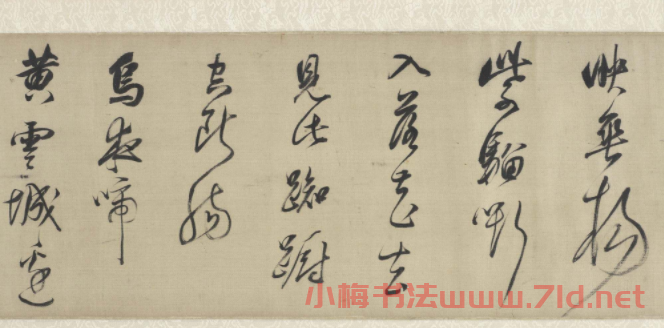 映垂楊
紫騮嘶
入落花去
見此踟躕
空斷腸
烏夜啼
黃雲城邊
小梅书法www.7ld.net